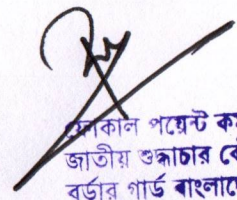 ফোকাল পয়েন্ট কর
জাতীয় শুদ্ধাচার কৌ
বর্ডার গার্ড বাংলাদে